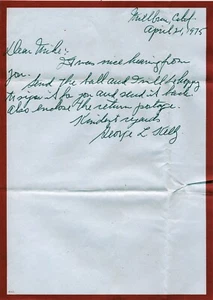 Millbrae, Calif.
April 21, 1975
Dear Mike:
It was nice hearing from
you. Send the ball and I will be happy
to sign it for you and send it back
also enclose the return postage.
Kindest regards
George L Kelly